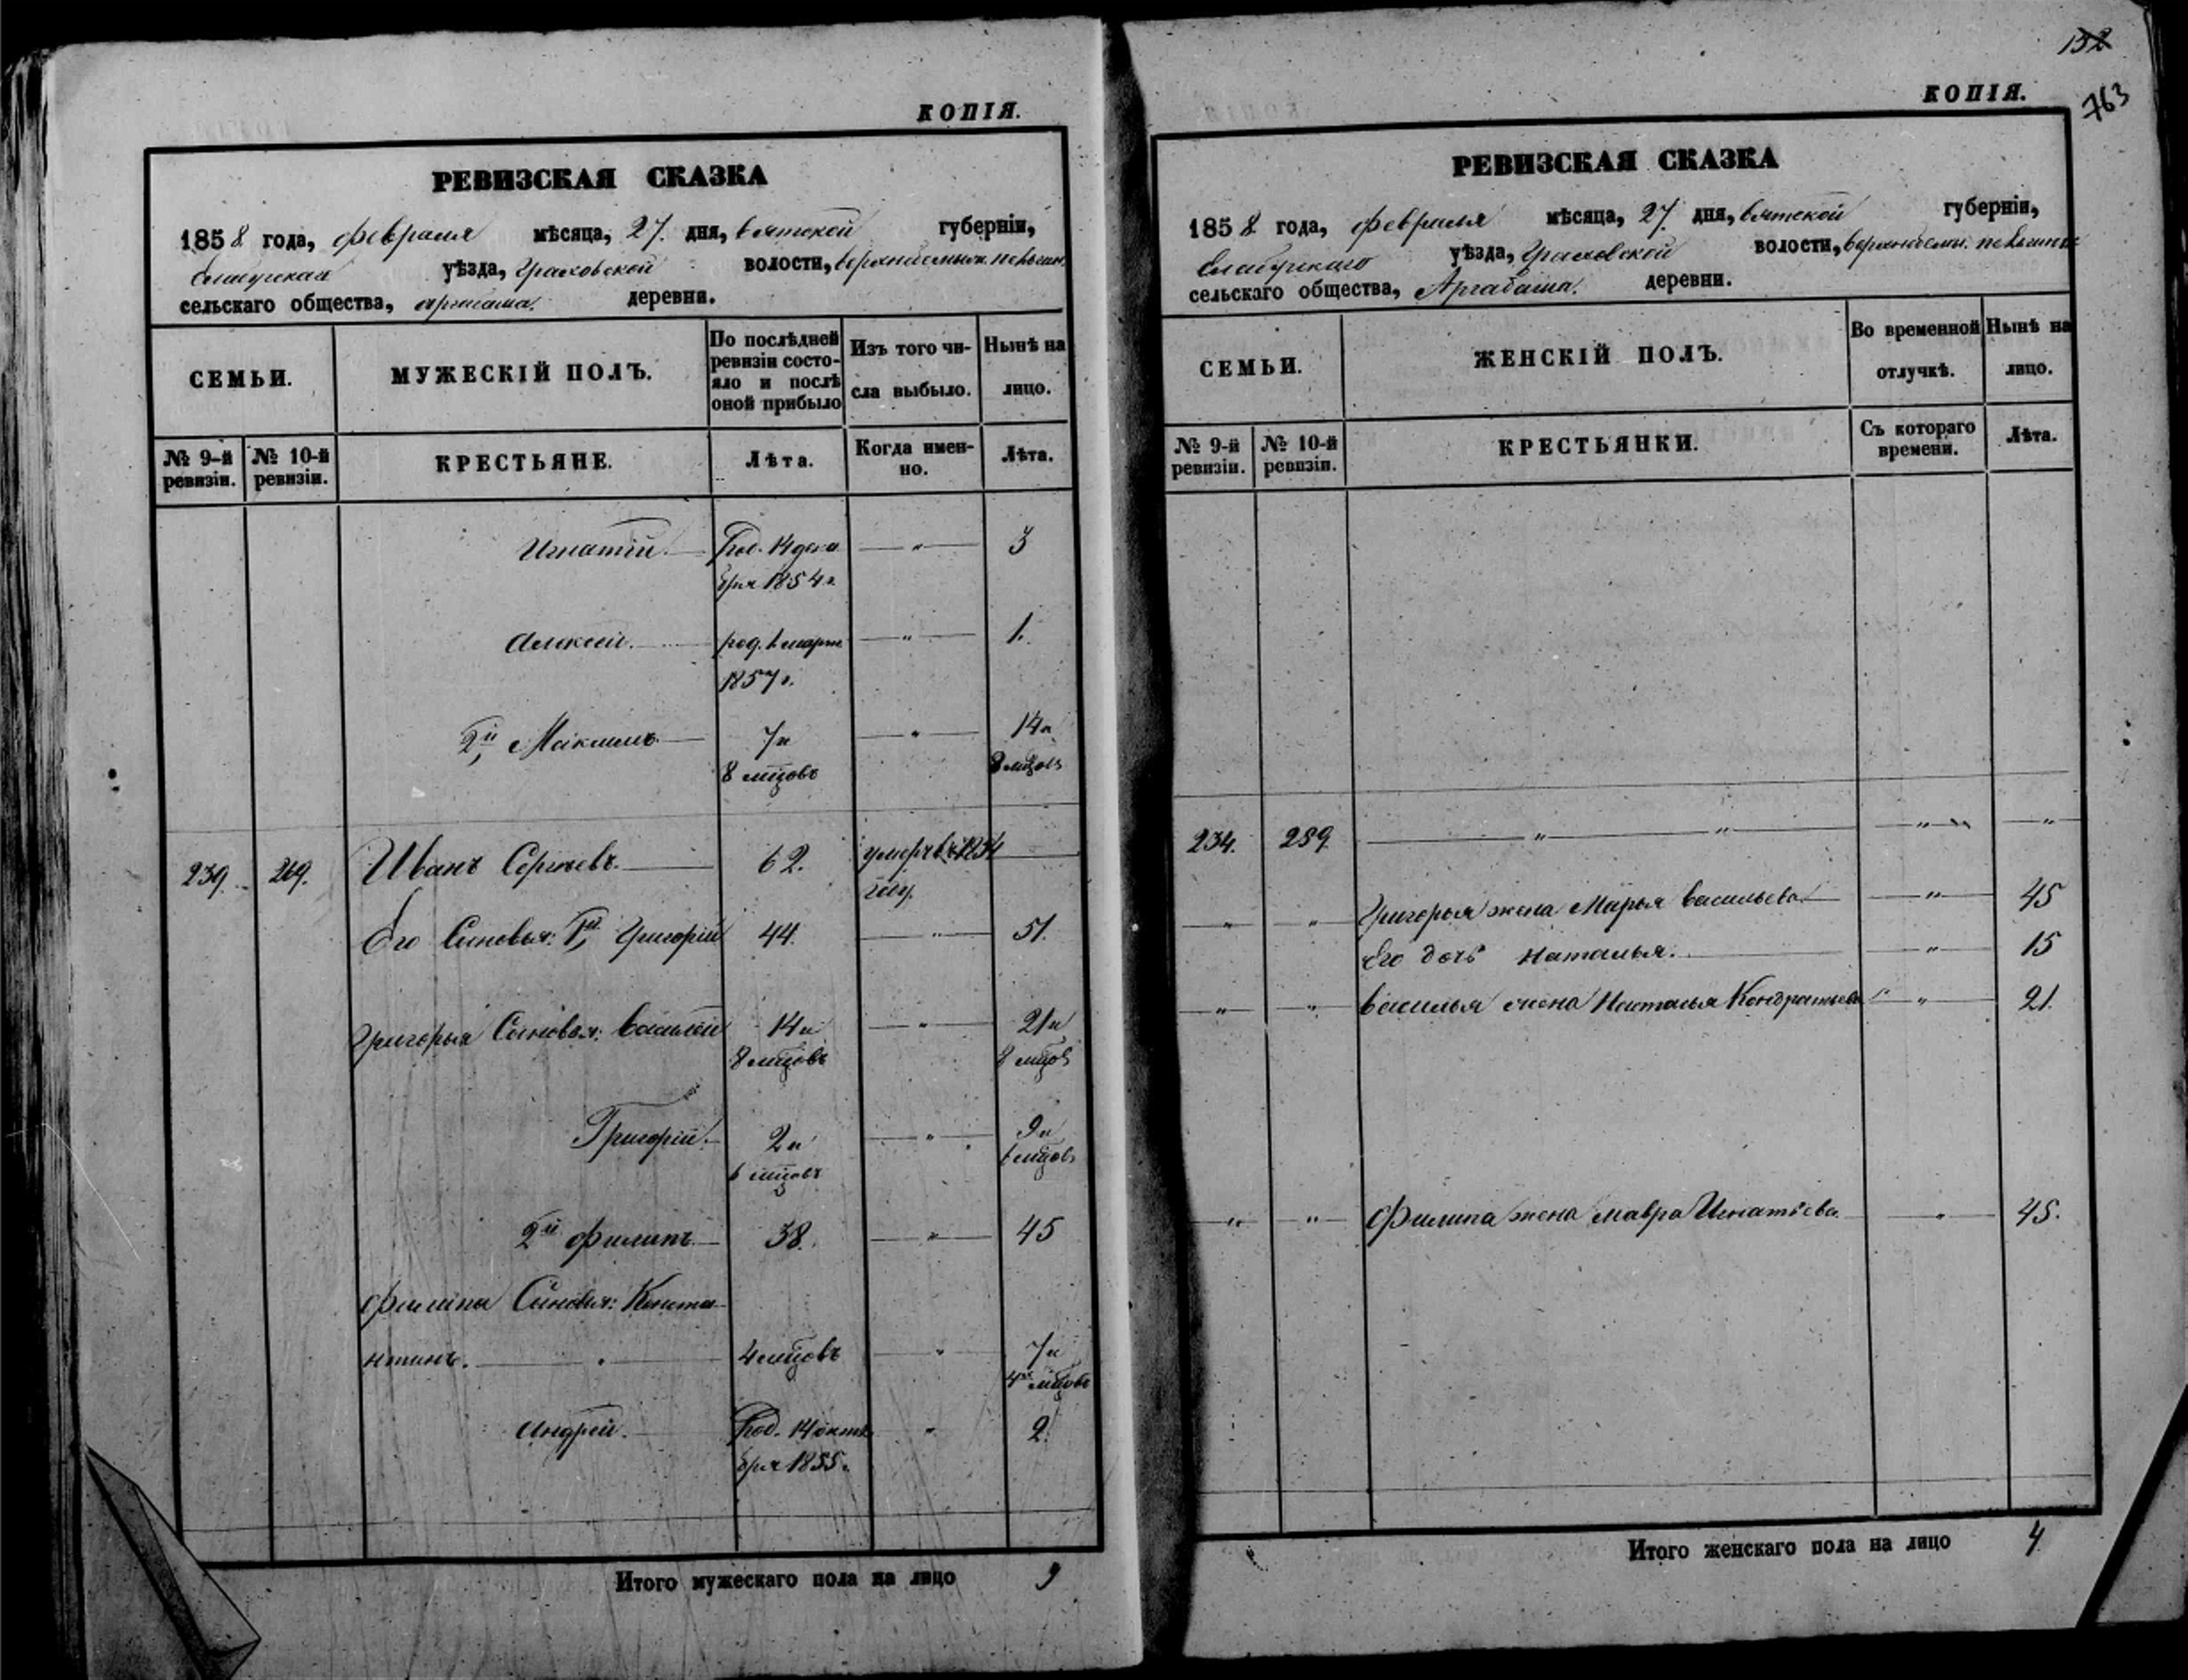 КОПІЯ.
РЕВИЗСКАЯ СКАЗКА
1858 года, февраля мѣсяца, 27. дня, вятской губерніи,
уѣзда, Граховской волости,
сельскаго общества, деревни.
СЕМЬИ.
МУЖЕСКІЙ ПОЛЪ.
По послѣдней ревизіи состояло и послѣ оной прибыло
Изъ того числа выбыло.
Нынѣ на лицо.
№ 9-й ревизіи.
№ 10-й ревизіи.
КРЕСТЬЯНЕ.
Лѣта.
Когда именно.
Лѣта.
Игнатій. Род. 14 дека — " — 3
бря 1854 г.
Алексей. род. 1 марта — " — 1.
1857 г.
2й Максимъ 7 и — " — 14 и
8 мцовъ 8 мцовъ
239. 269. Иванъ Сергѣевъ. 62. умеръ въ 1854
году.
Его Сыновья: 1й Григорій 44. — " — 51.
Григорья Сыновья: Василій 14 и — " — 21 и
8 мцовъ 8 мцов
Григорій. 2 и — " — 9 и
6 мцовъ 6 мцовъ
2й Филипъ 38. — " — 45
Филипа Сыновья: Конста-
нтинъ. 4 мцовъ — " — 7 и
4 мцовъ
Андрей. Род. 14 октя " 2.
бря 1855 г.
Итого мужескаго пола на лицо 9
132
763
КОПІЯ.
РЕВИЗСКАЯ СКАЗКА
1858 года, февраля мѣсяца, 27 дня, вятской губерніи,
Елабужскаго уѣзда, Граховской волости,
сельскаго общества, Аргабаша. деревни.
СЕМЬИ.
ЖЕНСКІЙ ПОЛЪ.
Во временной отлучкѣ.
Нынѣ на лицо.
№ 9-й ревизіи.
№ 10-й ревизіи.
КРЕСТЬЯНКИ.
Съ котораго времени.
Лѣта.
234. 259. — " — " — " — " —
" " Григорья жена Марья Васильева — " — 45
Его дочь Наталья. — " — 15
" " Василья жена Наталья Кондратьева " 21.
" " Филипа жена Мавра Игнатьева " 45.
Итого женскаго пола на лицо 4